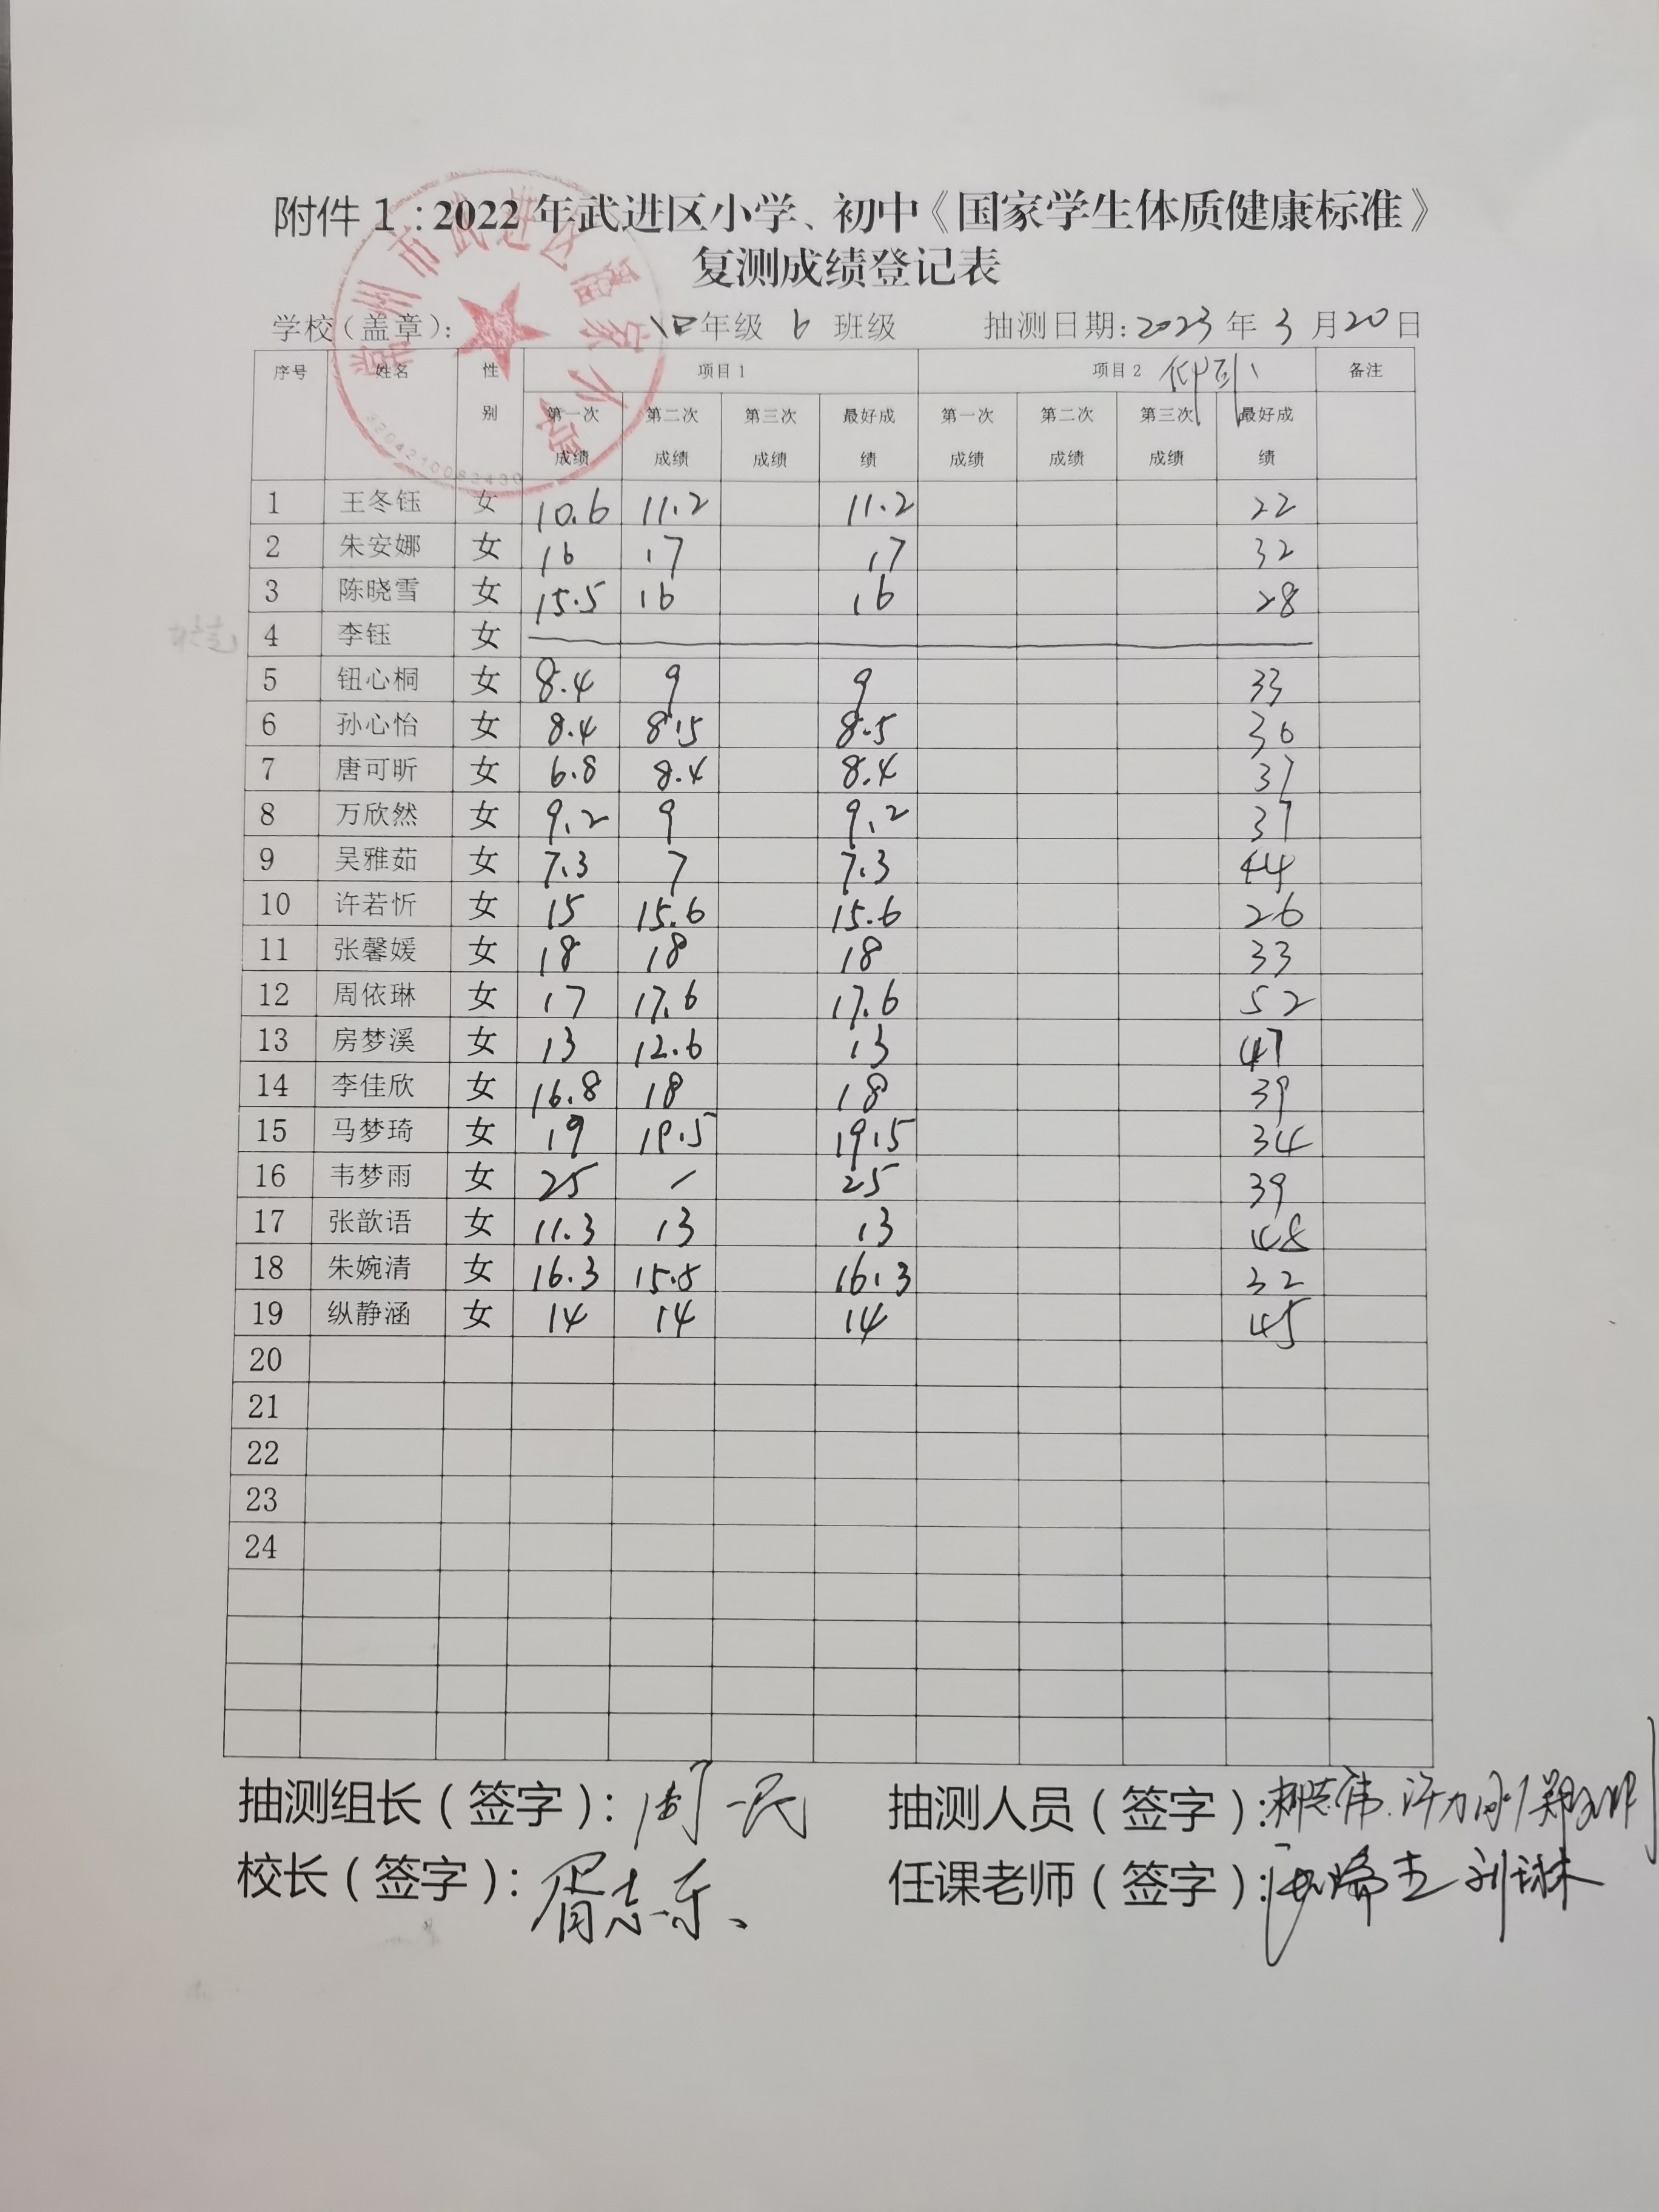 附件1:2022年武进区小学、初中《国家学生体质健康标准》
复测成绩登记表
学校(盖章): 四年级 6 班级 抽测日期:2023年3月20日
序号 姓名 性别 项目1 项目2 仰卧 备注
第一次成绩 第二次成绩 第三次成绩 最好成绩 第一次成绩 第二次成绩 第三次成绩 最好成绩
1 王冬钰 女 10.6 11.2 11.2 22
2 朱安娜 女 16 17 17 32
3 陈晓雪 女 15.5 16 16 28
4 李钰 女
5 钮心桐 女 8.4 9 9 33
6 孙心怡 女 8.4 8.5 8.5 36
7 唐可昕 女 6.8 8.4 8.4 37
8 万欣然 女 9.2 9 9.2 37
9 吴雅茹 女 7.3 7 7.3 44
10 许若忻 女 15 15.6 15.6 26
11 张馨媛 女 18 18 18 33
12 周依琳 女 17 17.6 17.6 52
13 房梦溪 女 13 12.6 13 47
14 李佳欣 女 16.8 18 18 39
15 马梦琦 女 19 19.5 19.5 34
16 韦梦雨 女 25 / 25 39
17 张歆语 女 11.3 13 13 48
18 朱婉清 女 16.3 15.8 16.3 32
19 纵静涵 女 14 14 14 45
20
21
22
23
24
抽测组长(签字): 周一民 抽测人员(签字):
校长(签字): 胥志东、 任课老师(签字): 刘琳
常州市武进区 家小学
3204210083490